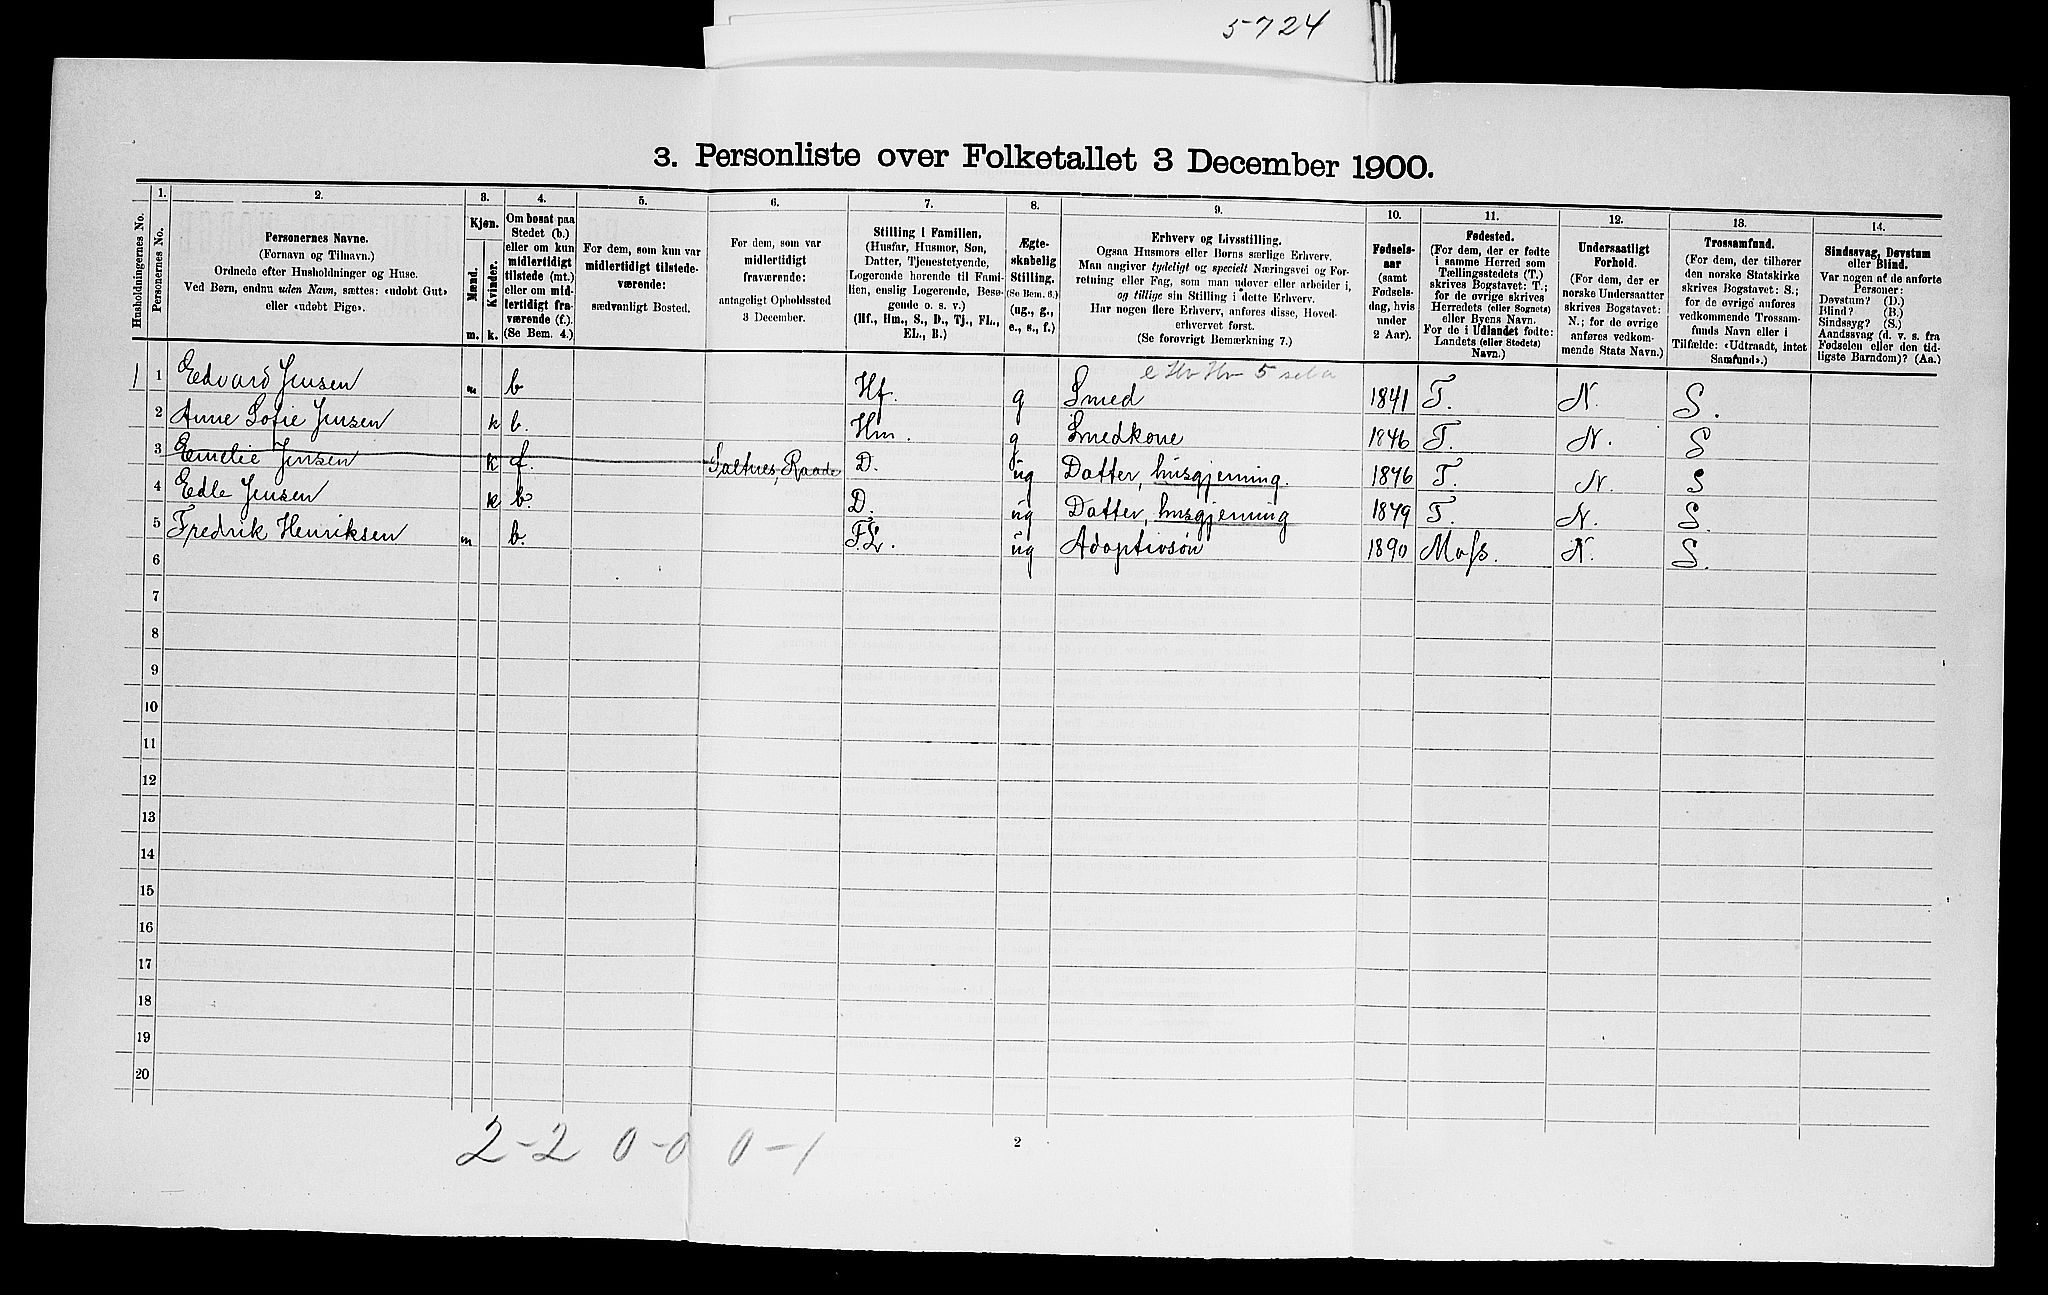 5724
3. Personliste over Folketallet 3 December 1900.
1. 2. 3. 4. 5. 6. 7. 8. 9. 10. 11. 12. 13. 14.
Husholdningernes No.
Personernes No.
Personernes Navne.
(Fornavn og Tilnavn.)
Ordnede efter Husholdninger og Huse.
Ved Børn, endnu uden Navn, sættes: «udøbt Gut»
eller «udøbt Pige».
Kjøn.
Mænd.
Kvinder.
m. k.
Om bosat paa
Stedet (b.)
eller om kun
midlertidigt
tilstede (mt.)
eller om mid-
lertidigt fra-
værende (f.).
(Se Bem. 4.)
For dem, som kun var
midlertidigt tilstede-
værende:
sædvanligt Bosted.
For dem, som var
midlertidigt
fraværende:
antageligt Opholdssted
3 December.
Stilling i Familien.
(Husfar, Husmor, Søn,
Datter, Tjenestetyende,
Logerende hørende til Fami-
lien, enslig Logerende, Besø-
gende o. s. v.)
(Hf., Hm., S., D., Tj., FL.,
EL., B.)
Ægte-
skabelig
Stilling.
(Se Bem. 6.)
(ug., g.,
e., s., f.)
Erhverv og Livsstilling.
Ogsaa Husmors eller Børns særlige Erhverv.
Man angiver tydeligt og specielt Næringsvei og For-
retning eller Fag, som man udøver eller arbeider i,
og tillige sin Stilling i dette Erhverv.
Har nogen flere Erhverv, anføres disse, Hoved-
erhvervet først.
(Se forøvrigt Bemærkning 7.)
Fødsels-
aar
(samt
Fødsels-
dag, hvis
under
2 Aar).
Fødested.
(For dem, der er fødte
i samme Herred som
Tællingsstedets (T.)
skrives Bogstavet: T.;
for de øvrige skrives
Herredets (eller Sognets)
eller Byens Navn.
For de i Udlandet fødte:
Landets (eller Stedets)
Navn.)
Undersaatligt
Forhold.
(For dem, der er
norske Undersaatter
skrives Bogstavet:
N.; for de øvrige
anføres vedkom-
mende Stats Navn.)
Trossamfund.
(For dem, der tilhører
den norske Statskirke
skrives Bogstavet: S.;
for de øvrige anføres
vedkommende Trossam-
funds Navn eller i
Tilfælde: «Udtraadt, intet
Samfund».)
Sindssvag, Døvstum
eller Blind.
Var nogen af de anførte
Personer:
Døvstum? (D.)
Blind? (B.)
Sindssyg? (S.)
Aandssvag (d. v. s. fra
Fødselen eller den tid-
ligste Barndom)? (Aa.)
1 1 Edvard Jensen m b Hf. g Smed 1841 T. N. S.
2 Anne Sofie Jensen k b. Hm. g Smedkone 1846 T. N. S
3 Emelie Jensen k f. Saltnes, Raade D. ug Datter, husgjerning. 1876 T. N. S
4 Edle Jensen k b. D. ug Datter, husgjerning 1879 T. N. S.
5 Fredrik Henriksen m b. F.L. ug Adoptivsøn 1890 Moss. N. S.
6
7
8
9
10
11
12
13
14
15
16
17
18
19
20
2-2 0-0 0-1
2